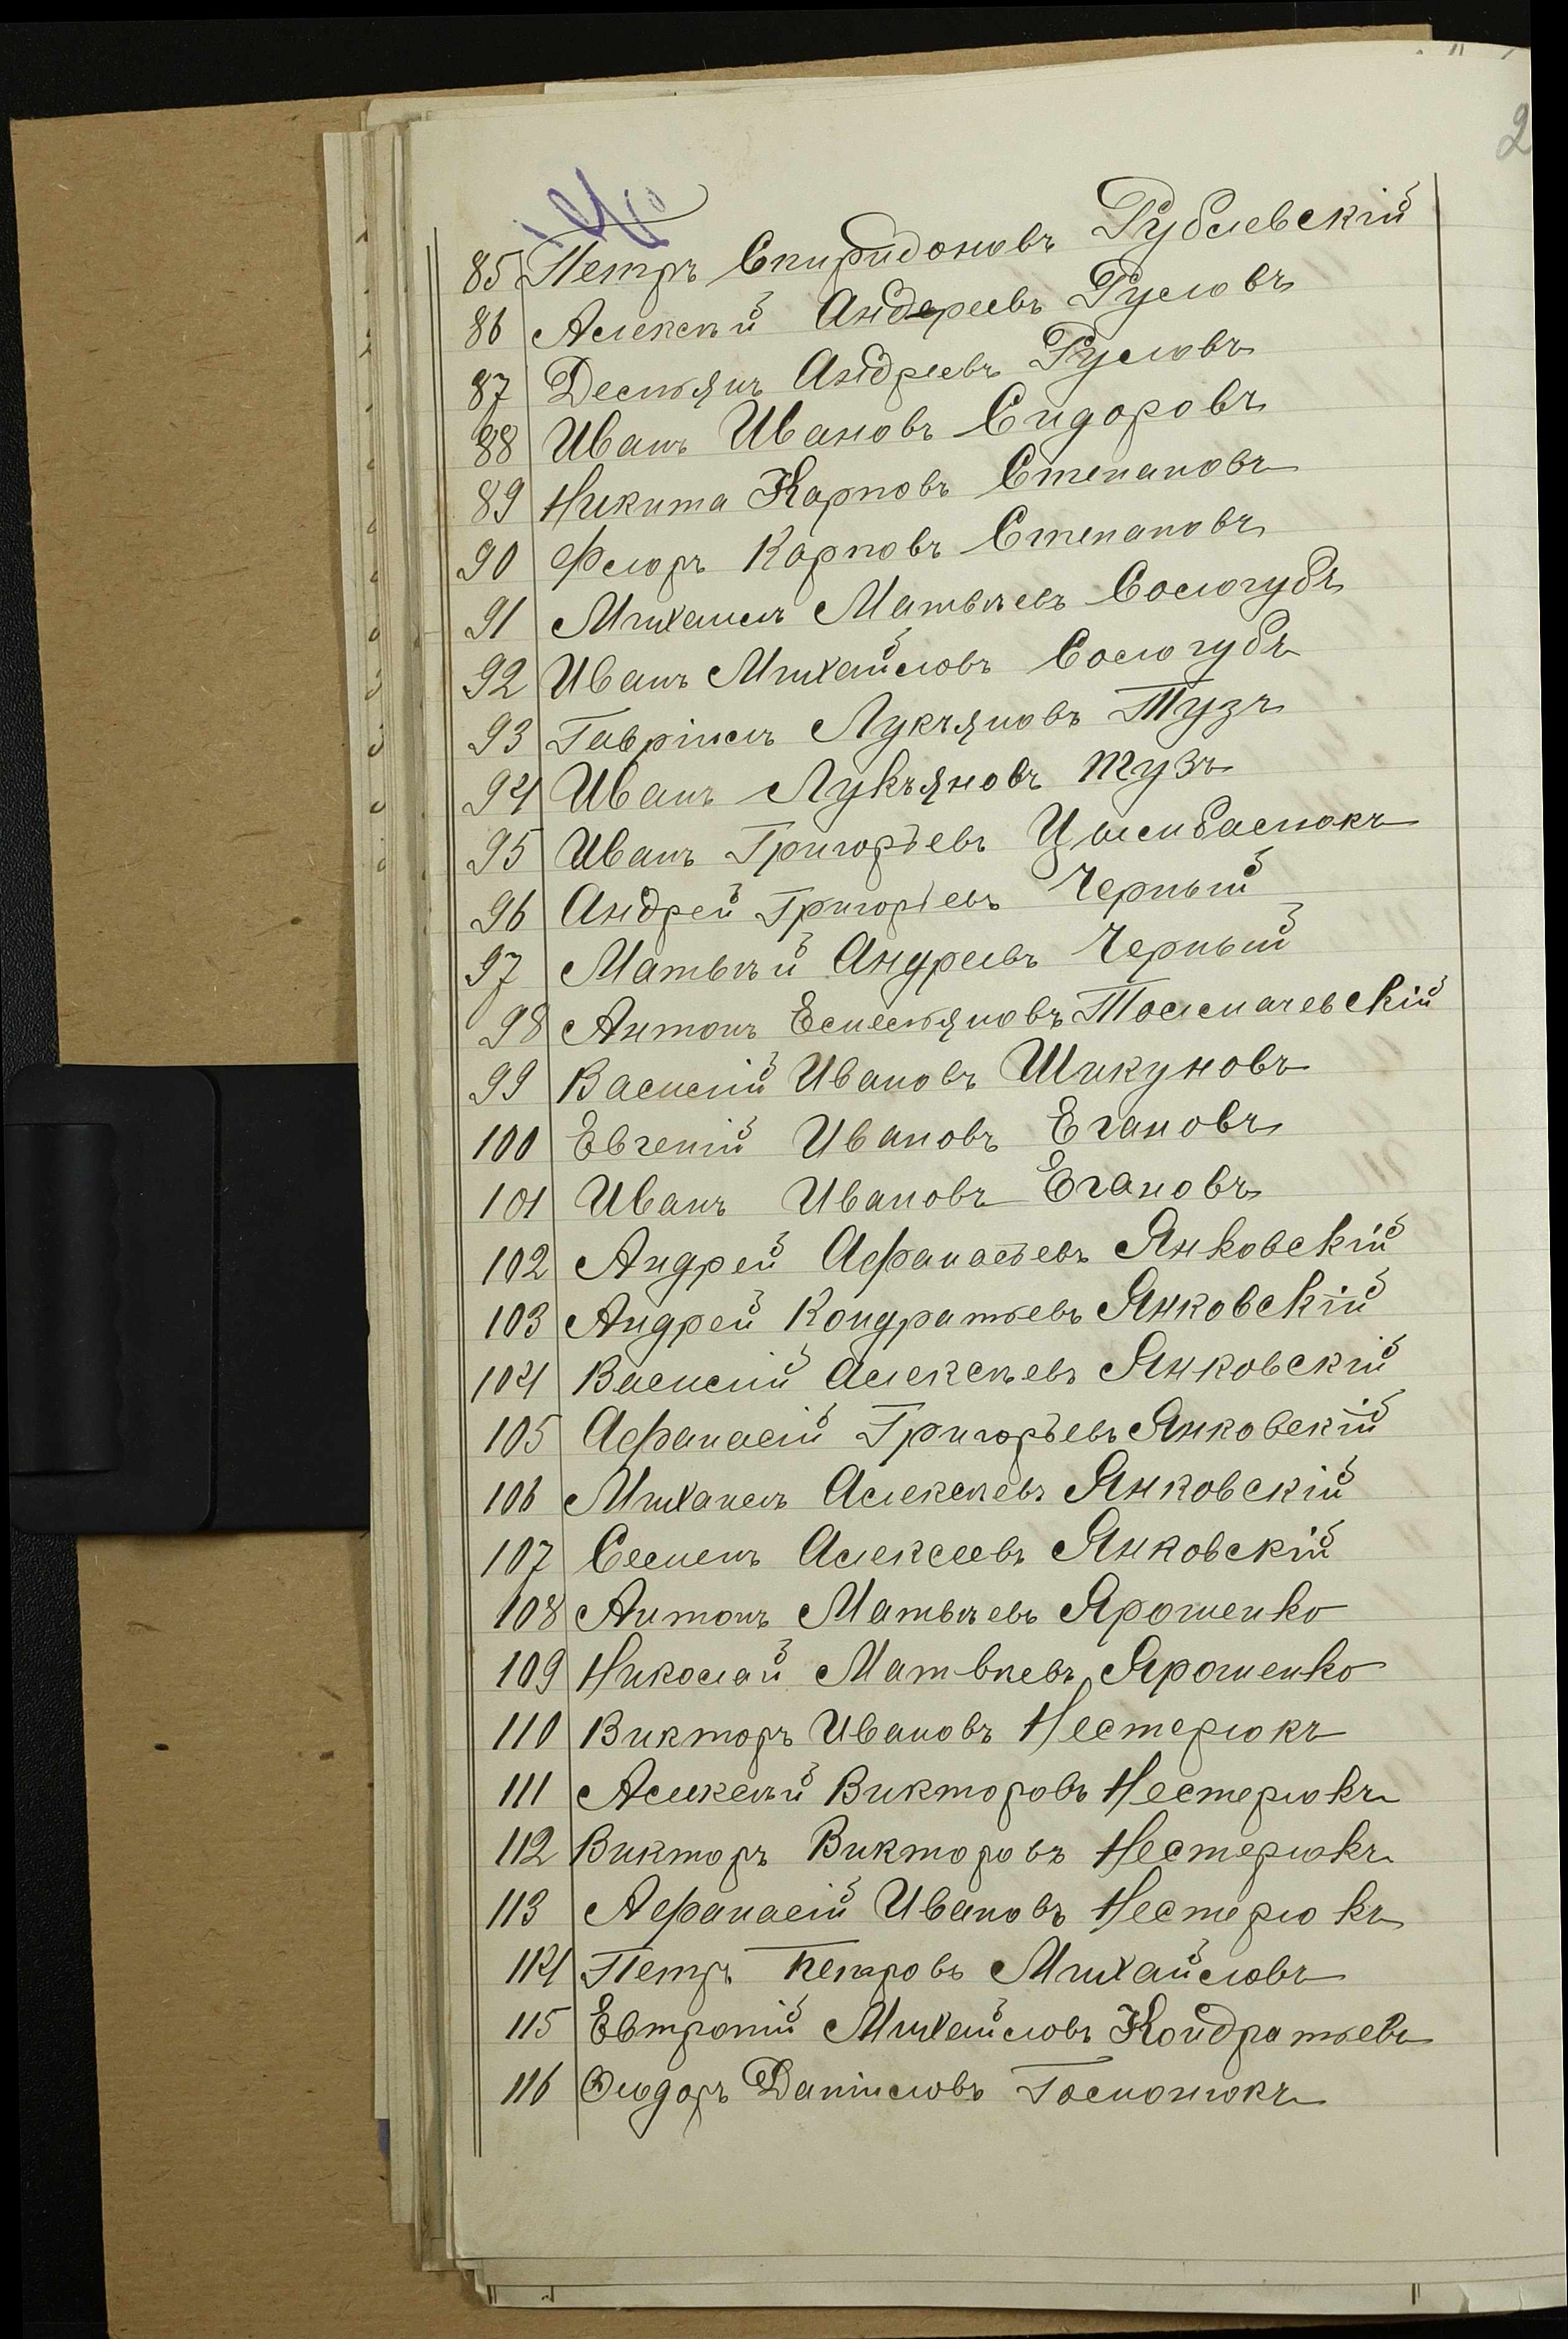 2
85 Петръ Спиридоновъ Рублевскій
86 Алексѣй Андреевъ Русловъ
87 Демьянъ Андреевъ Русловъ
88 Иванъ Ивановъ Сидоровъ
89 Никита Карповъ Степановъ
90 Флоръ Карповъ Степановъ
91 Михаилъ Матвѣевъ Сологубъ
92 Иванъ Михайловъ Сологубъ
93 Гавріилъ Лукъяновъ Тузъ
94 Иванъ Лукъяновъ Тузъ
95 Иванъ Григорьевъ Цымбалюкъ
96 Андрей Григорьевъ Черный
97 Матвѣй Андреевъ Черный
98 Антонъ Емельяновъ Толмачевскій
99 Василій Ивановъ Шикуновъ
100 Евгеній Ивановъ Егановъ
101 Иванъ Ивановъ Егановъ
102 Андрей Афанасьевъ Янковскій
103 Андрей Кондратьевъ Янковскій
104 Василій Алексѣевъ Янковскій
105 Афанасій Григорьевъ Янковскій
106 Михаилъ Алексѣевъ Янковскій
107 Семенъ Алексеевъ Янковскій
108 Антонъ Матвѣевъ Ярошенко
109 Николай Матвѣевъ Ярошенко
110 Викторъ Ивановъ Нестерюкъ
111 Алексѣй Викторовъ Нестерюкъ
112 Викторъ Викторовъ Нестерюкъ
113 Афанасій Ивановъ Нестерюкъ
114 Петръ Петровъ Михайловъ
115 Евтропій Михайловъ Кондратьевъ
116 Ѳеодоръ Даніиловъ